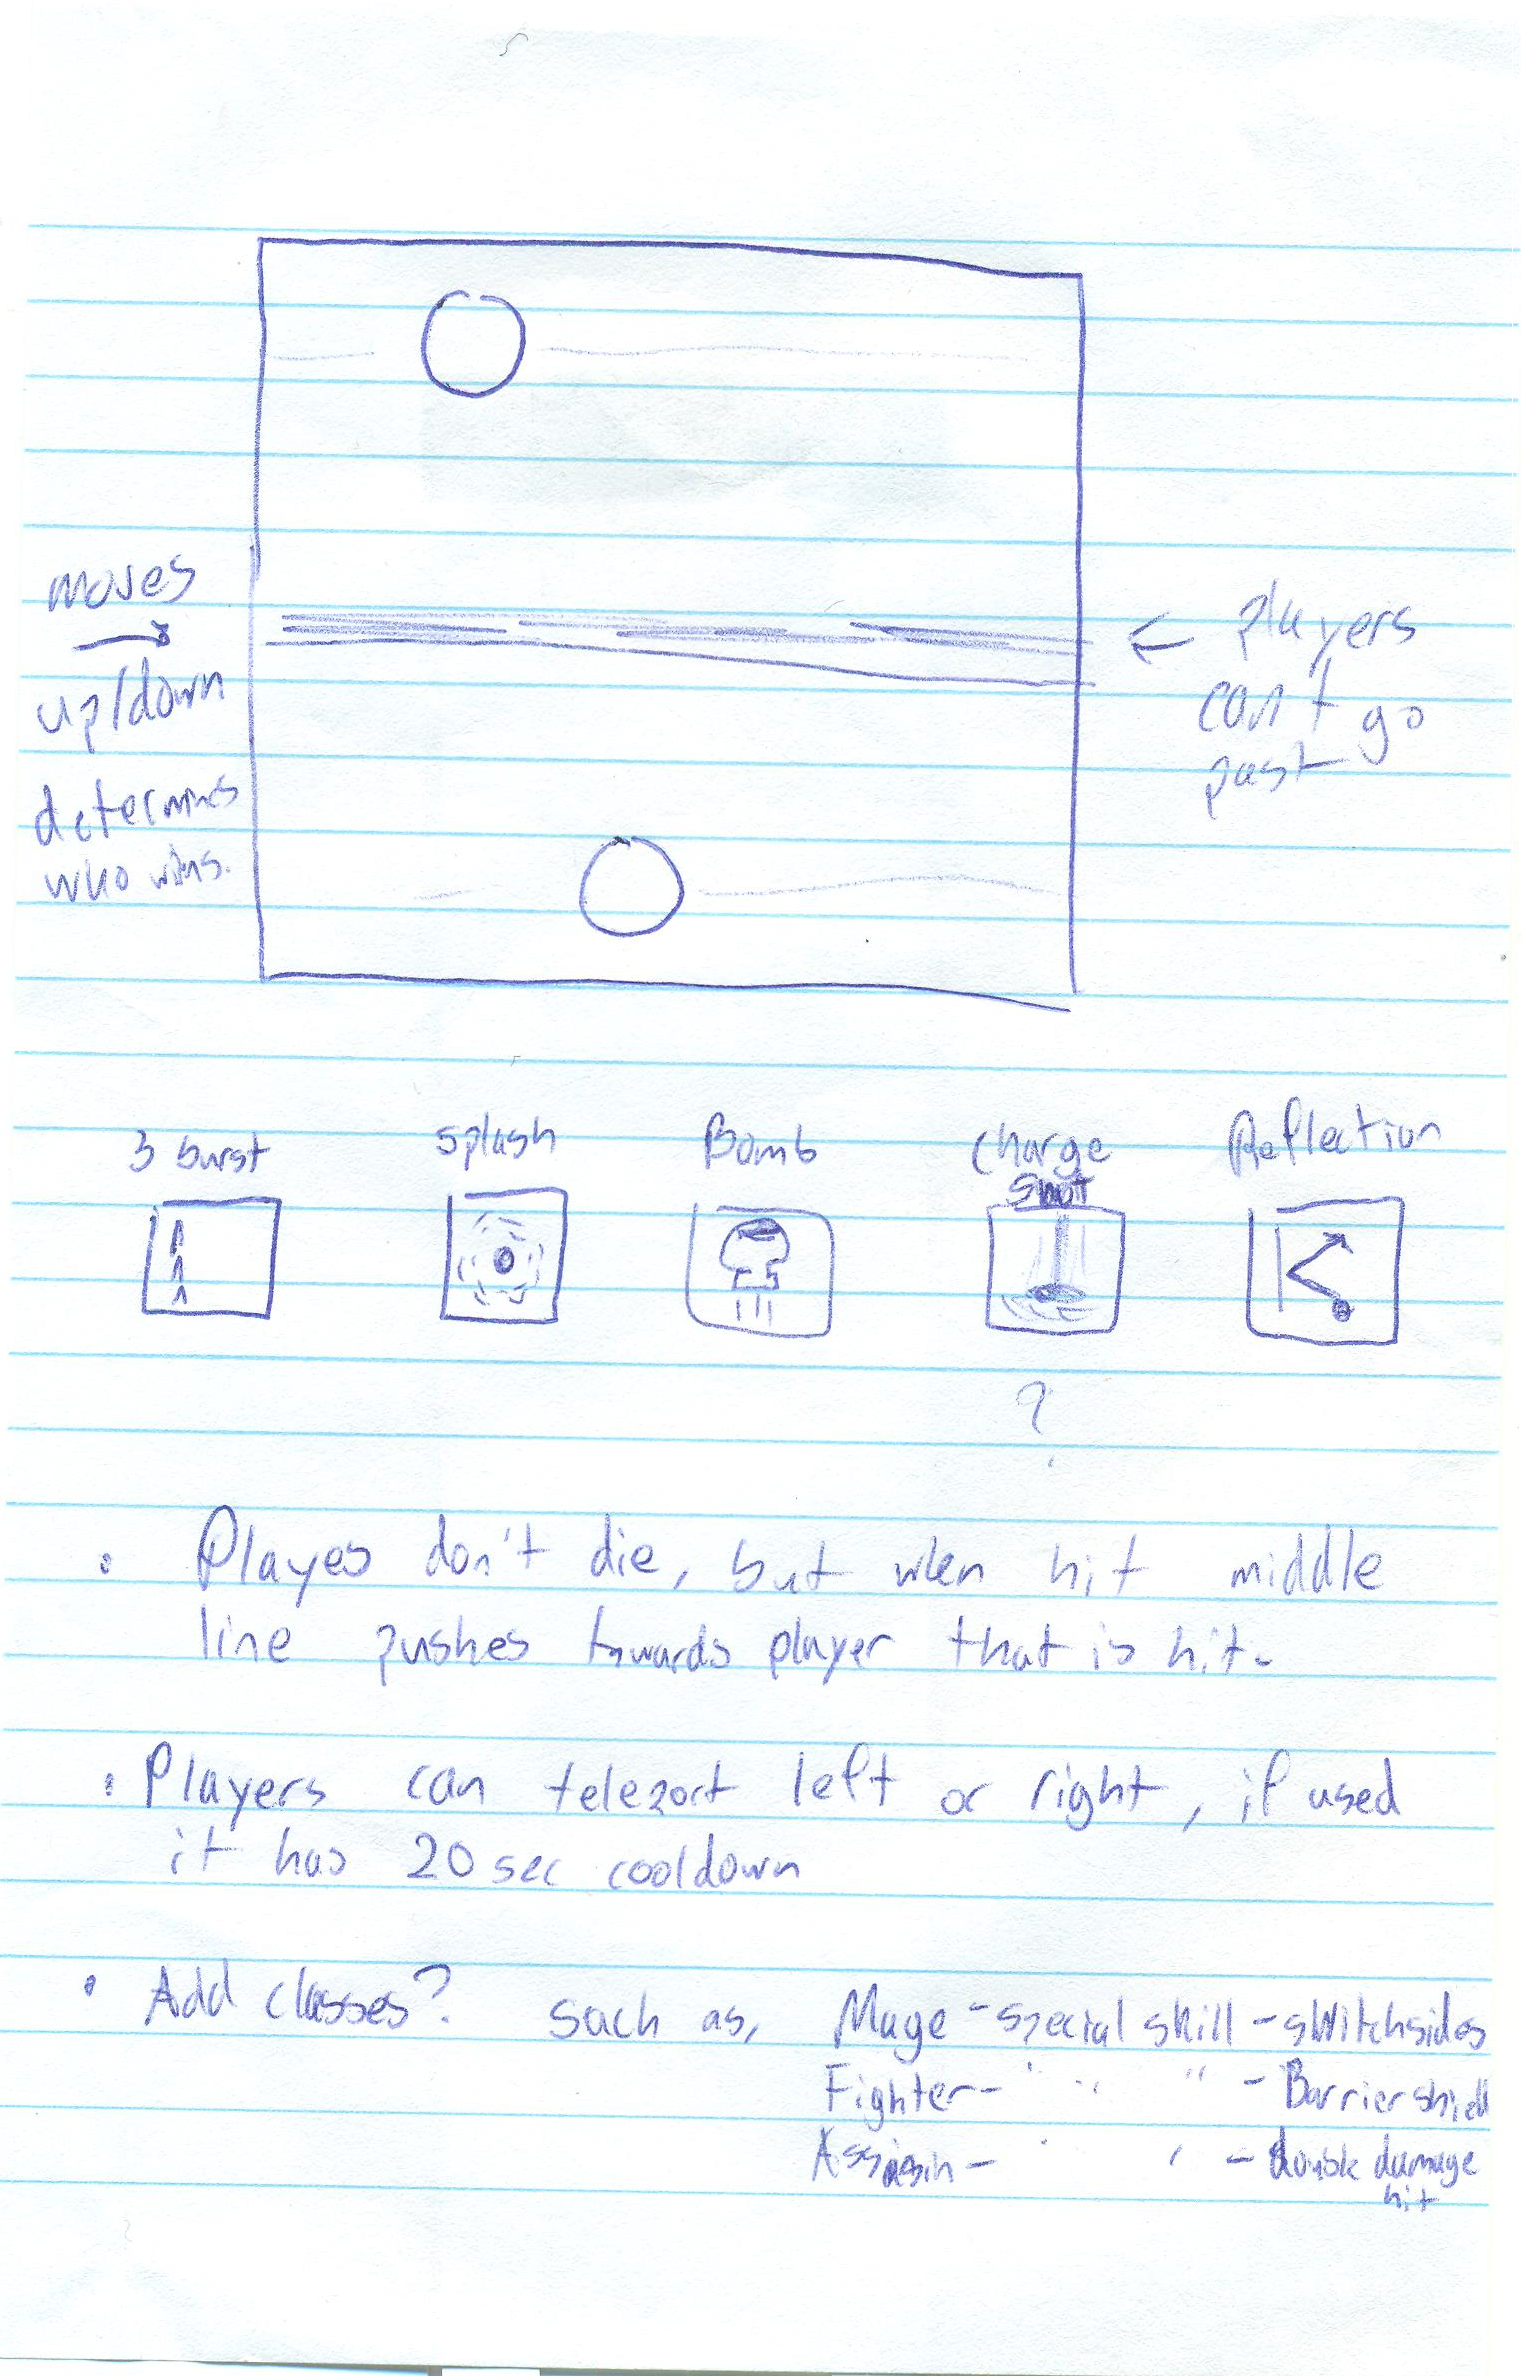 moves
up/down
determines
who wins.
players
can't go
past
3 burst
splash
Bomb
Charge
Shot
Reflection
?
• Playes don't die, but when hit middle
line pushes towards player that is hit.
• Players can teleport left or right, if used
it has 20 sec cooldown
• Add classes? Such as, Mage - special skill - switch sides
Fighter - " " " - Barrier shield
Assasin - " " - double damage
hit